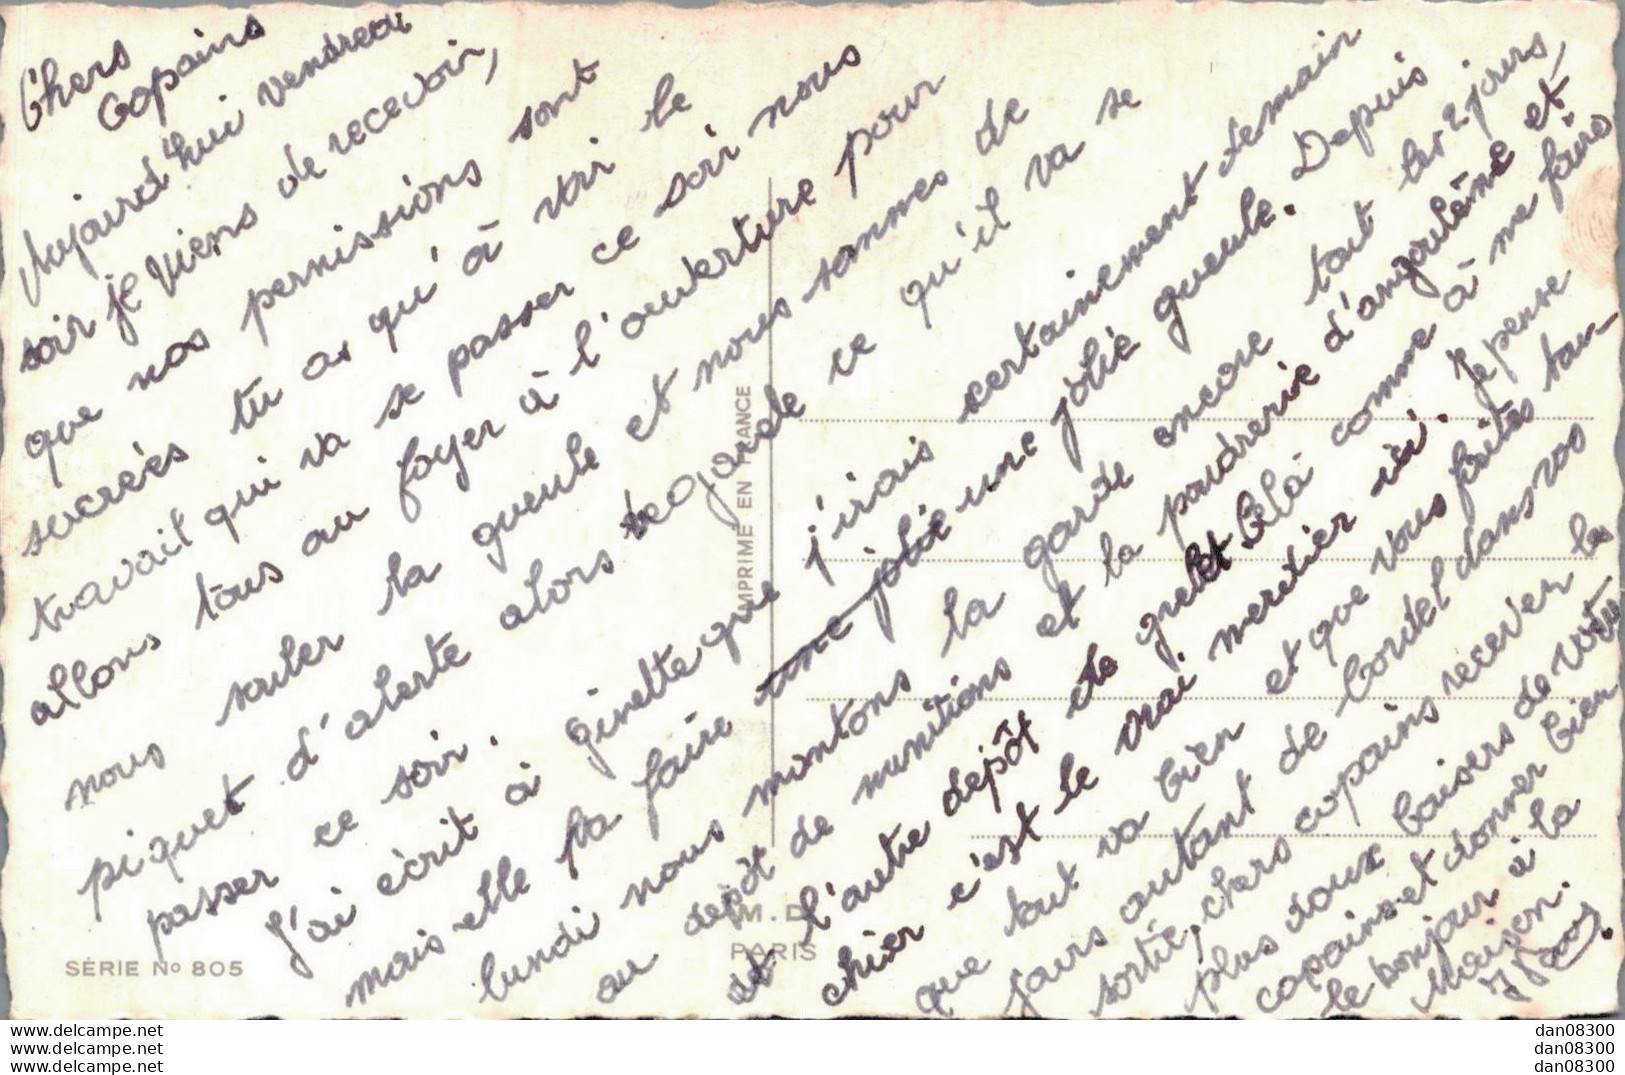 Chers
Copains
Aujourd'hui vendredi
soir je viens de recevoir,
que nos permissions sont
sucrées tu as qu'à voir le
travail qui va se passer ce soir nous
allons tous au foyer à l'ouverture pour
nous souler la gueule et nous sommes de
piquet d'alerte alors regarde ce qu'il va se
passer ce soir.
J'ai écrit à ginette que j'irais certainement demain
mais elle va faire une jolie une jolie gueule. Depuis
lundi nous montons la garde encore tout les 2 jours,
au depôt de munitions et la poudrerie d'angoulême et
et l'autre depôt de guet Bela comme à me faire
chier c'est le vrai merdier ici. Je pense
que tout va bien et que vous faites tou-
jours autant de bordel dans vos
sortie, chers copains recever les
plus doux baisers de votre
copains et donner bien
le bonjour à la
Maison.
IMPRIMÉ EN FRANCE
M. D.
PARIS
SÉRIE No 805
www.delcampe.net
www.delcampe.net
www.delcampe.net
dan08300
dan08300
dan08300